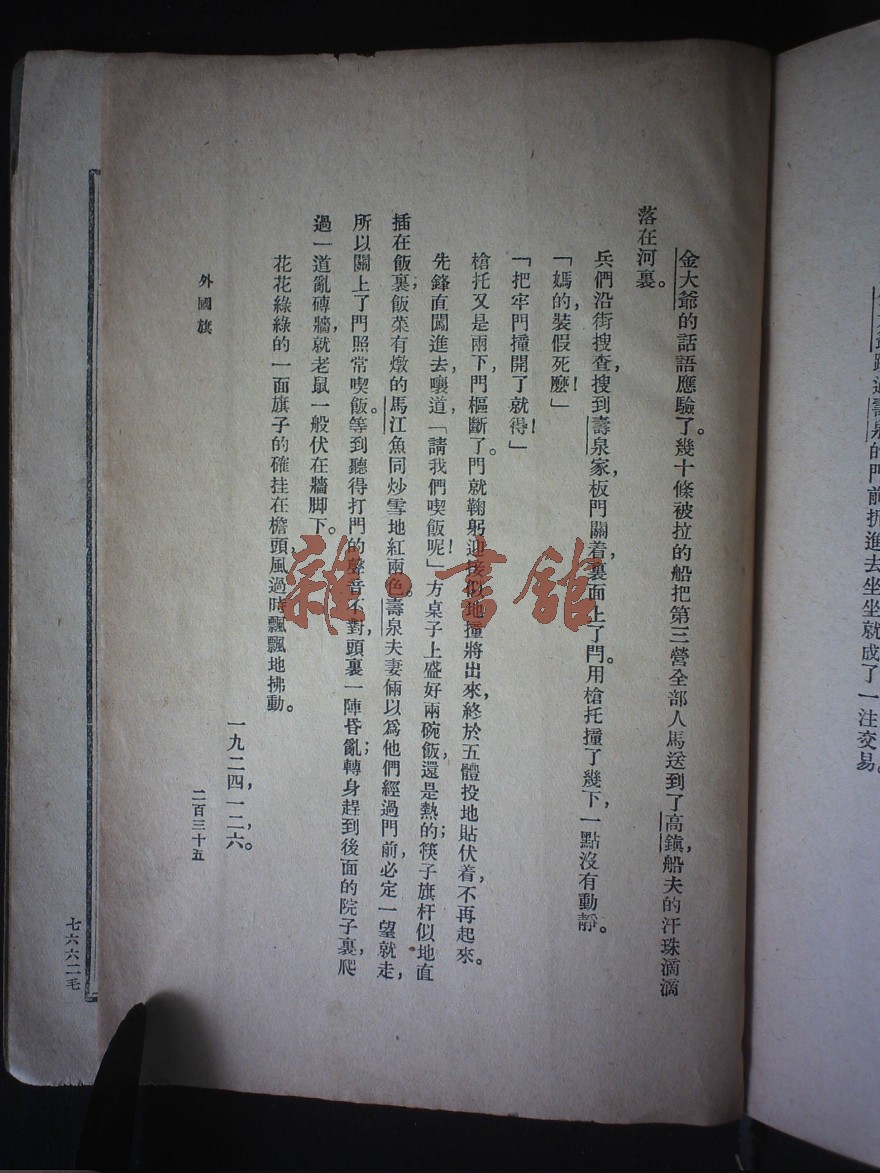 的門前折進去坐坐就成了一注交易。
金大爺的話語應驗了。幾十條被拉的船把第三營全部人馬送到了高鎮，船夫的汗珠滴滴
落在河裏。
兵們沿街搜查，搜到壽泉家，板門關着，裏面上了閂。用槍托撞了幾下，一點沒有動靜。
「媽的，裝假死麽！」
「把牢門撞開了就得！」
槍托又是兩下，門樞斷了。門就鞠躬迎接似地撞將出來，終於五體投地貼伏着，不再起來。
先鋒直闖進去，嚷道，「請我們喫飯呢！」方桌子上盛好兩碗飯，還是熱的；筷子旗杆似地直
插在飯裏；飯菜有燉的馬江魚同炒雪地紅兩色。壽泉夫妻倆以爲他們經過門前，必定一望就走，
所以關上了門照常喫飯。等到聽得打門的聲音不對，頭裏一陣昏亂；轉身趕到後面的院子裏，爬
過一道亂磚牆，就老鼠一般伏在牆脚下。
花花綠綠的一面旗子的確挂在檐頭，風過時飄飄地拂動。
一九二四，一二，六。
外國旗
二百三十五
七六六二毛
雜·書館